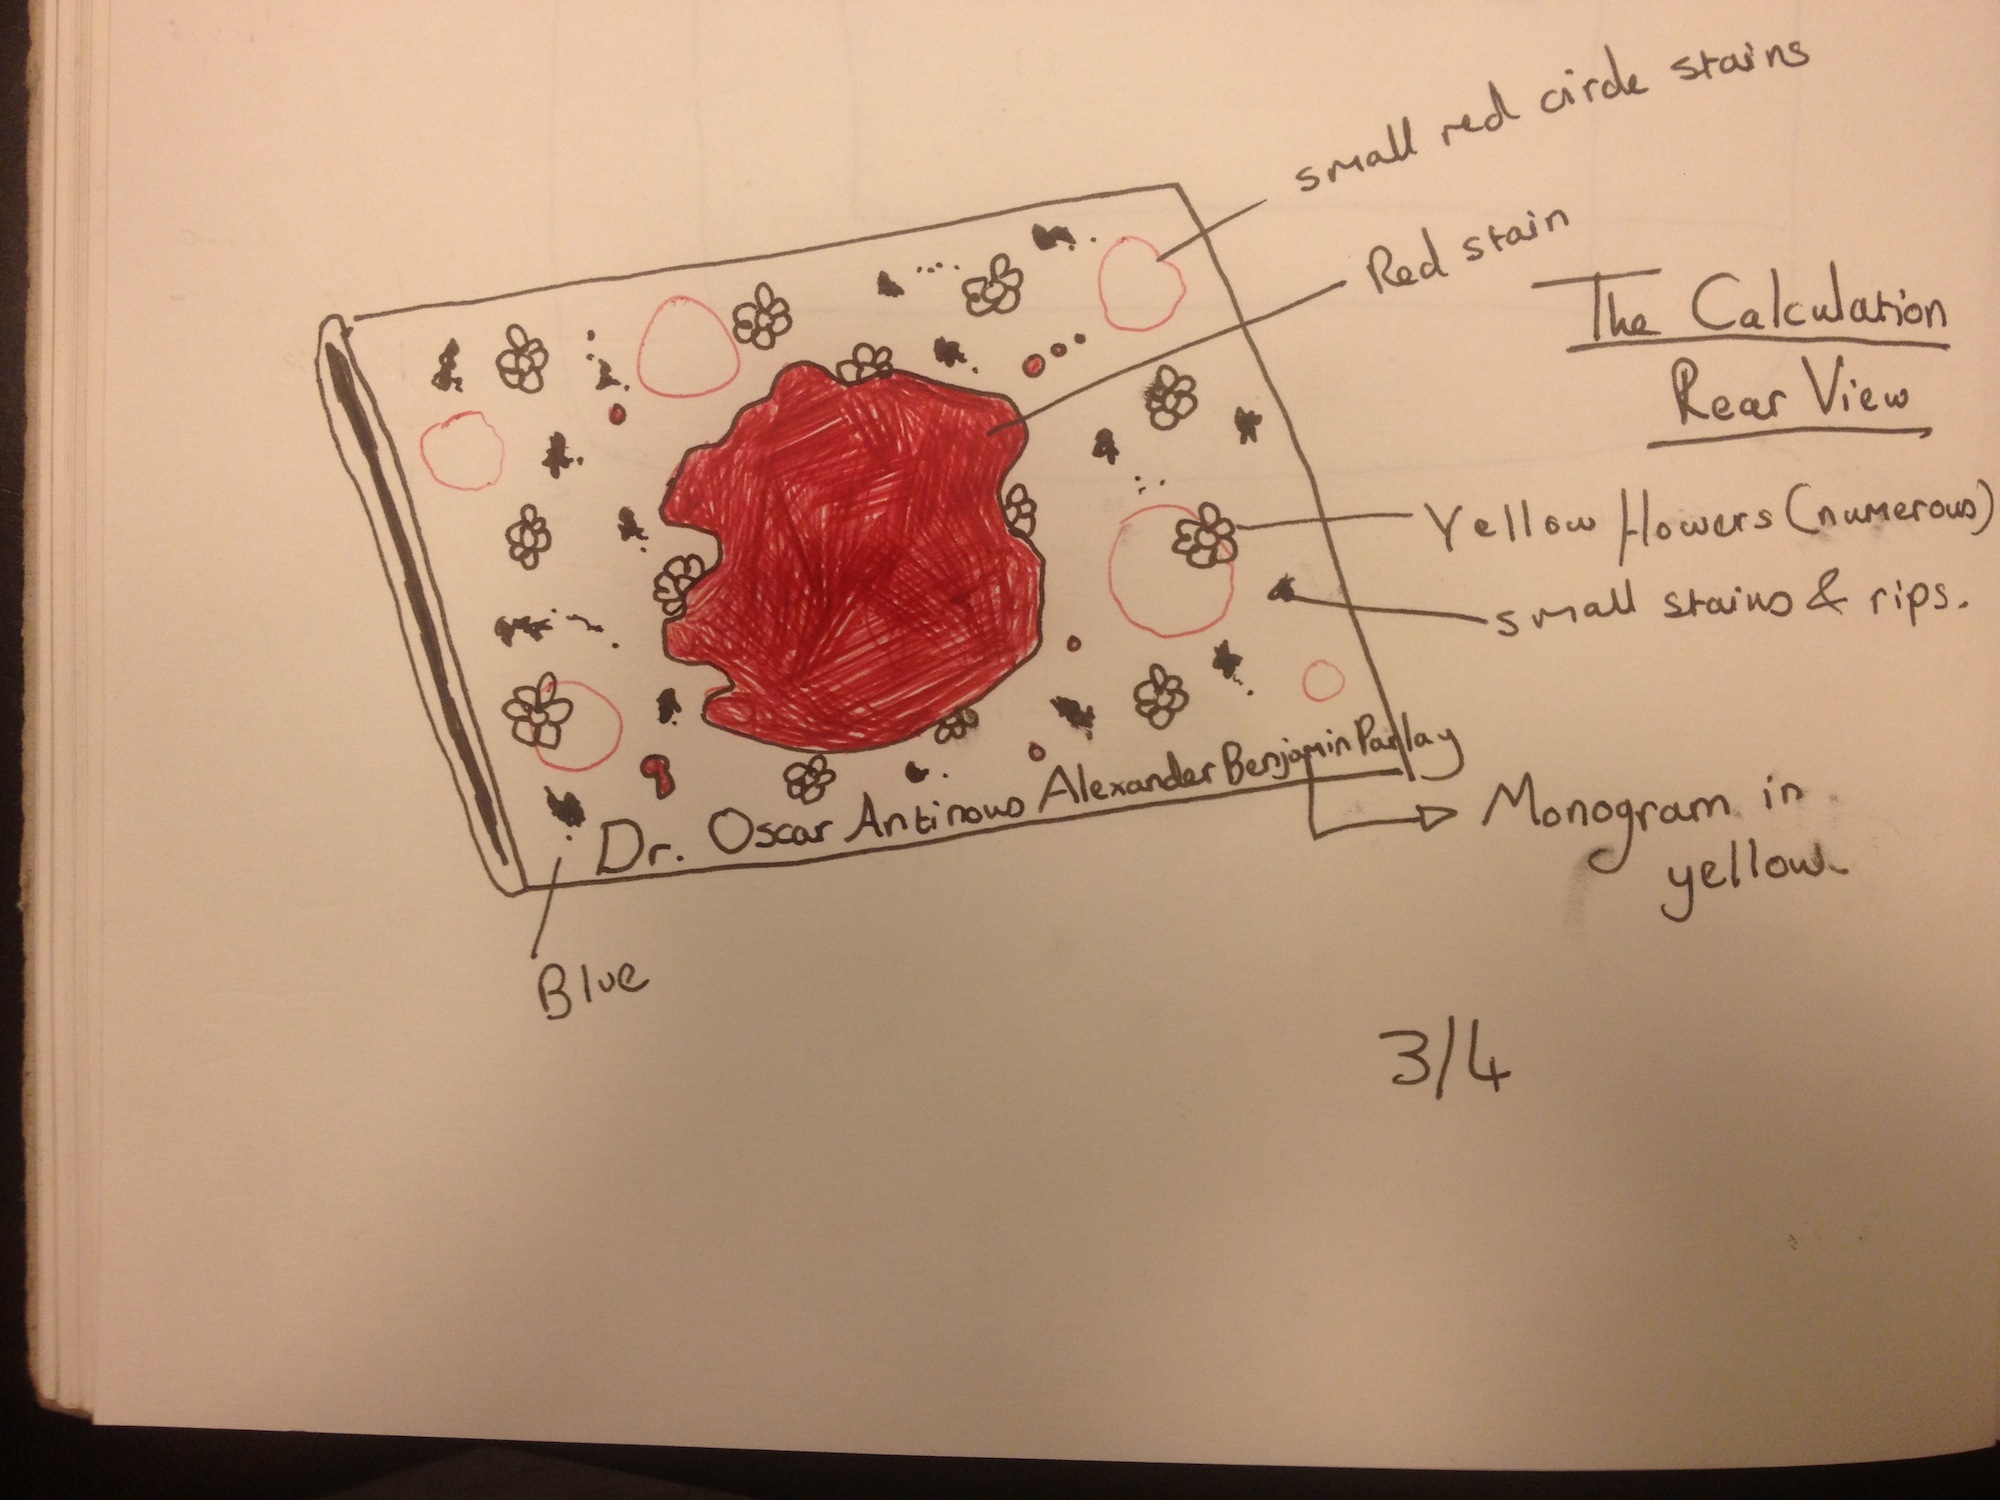 small red circle stains
Red stain
The Calculation
Rear View
Yellow flowers (numerous)
small stains & rips.
Dr. Oscar Antinous Alexander Benjamin Parlay
Monogram in
yellow.
Blue
3/4